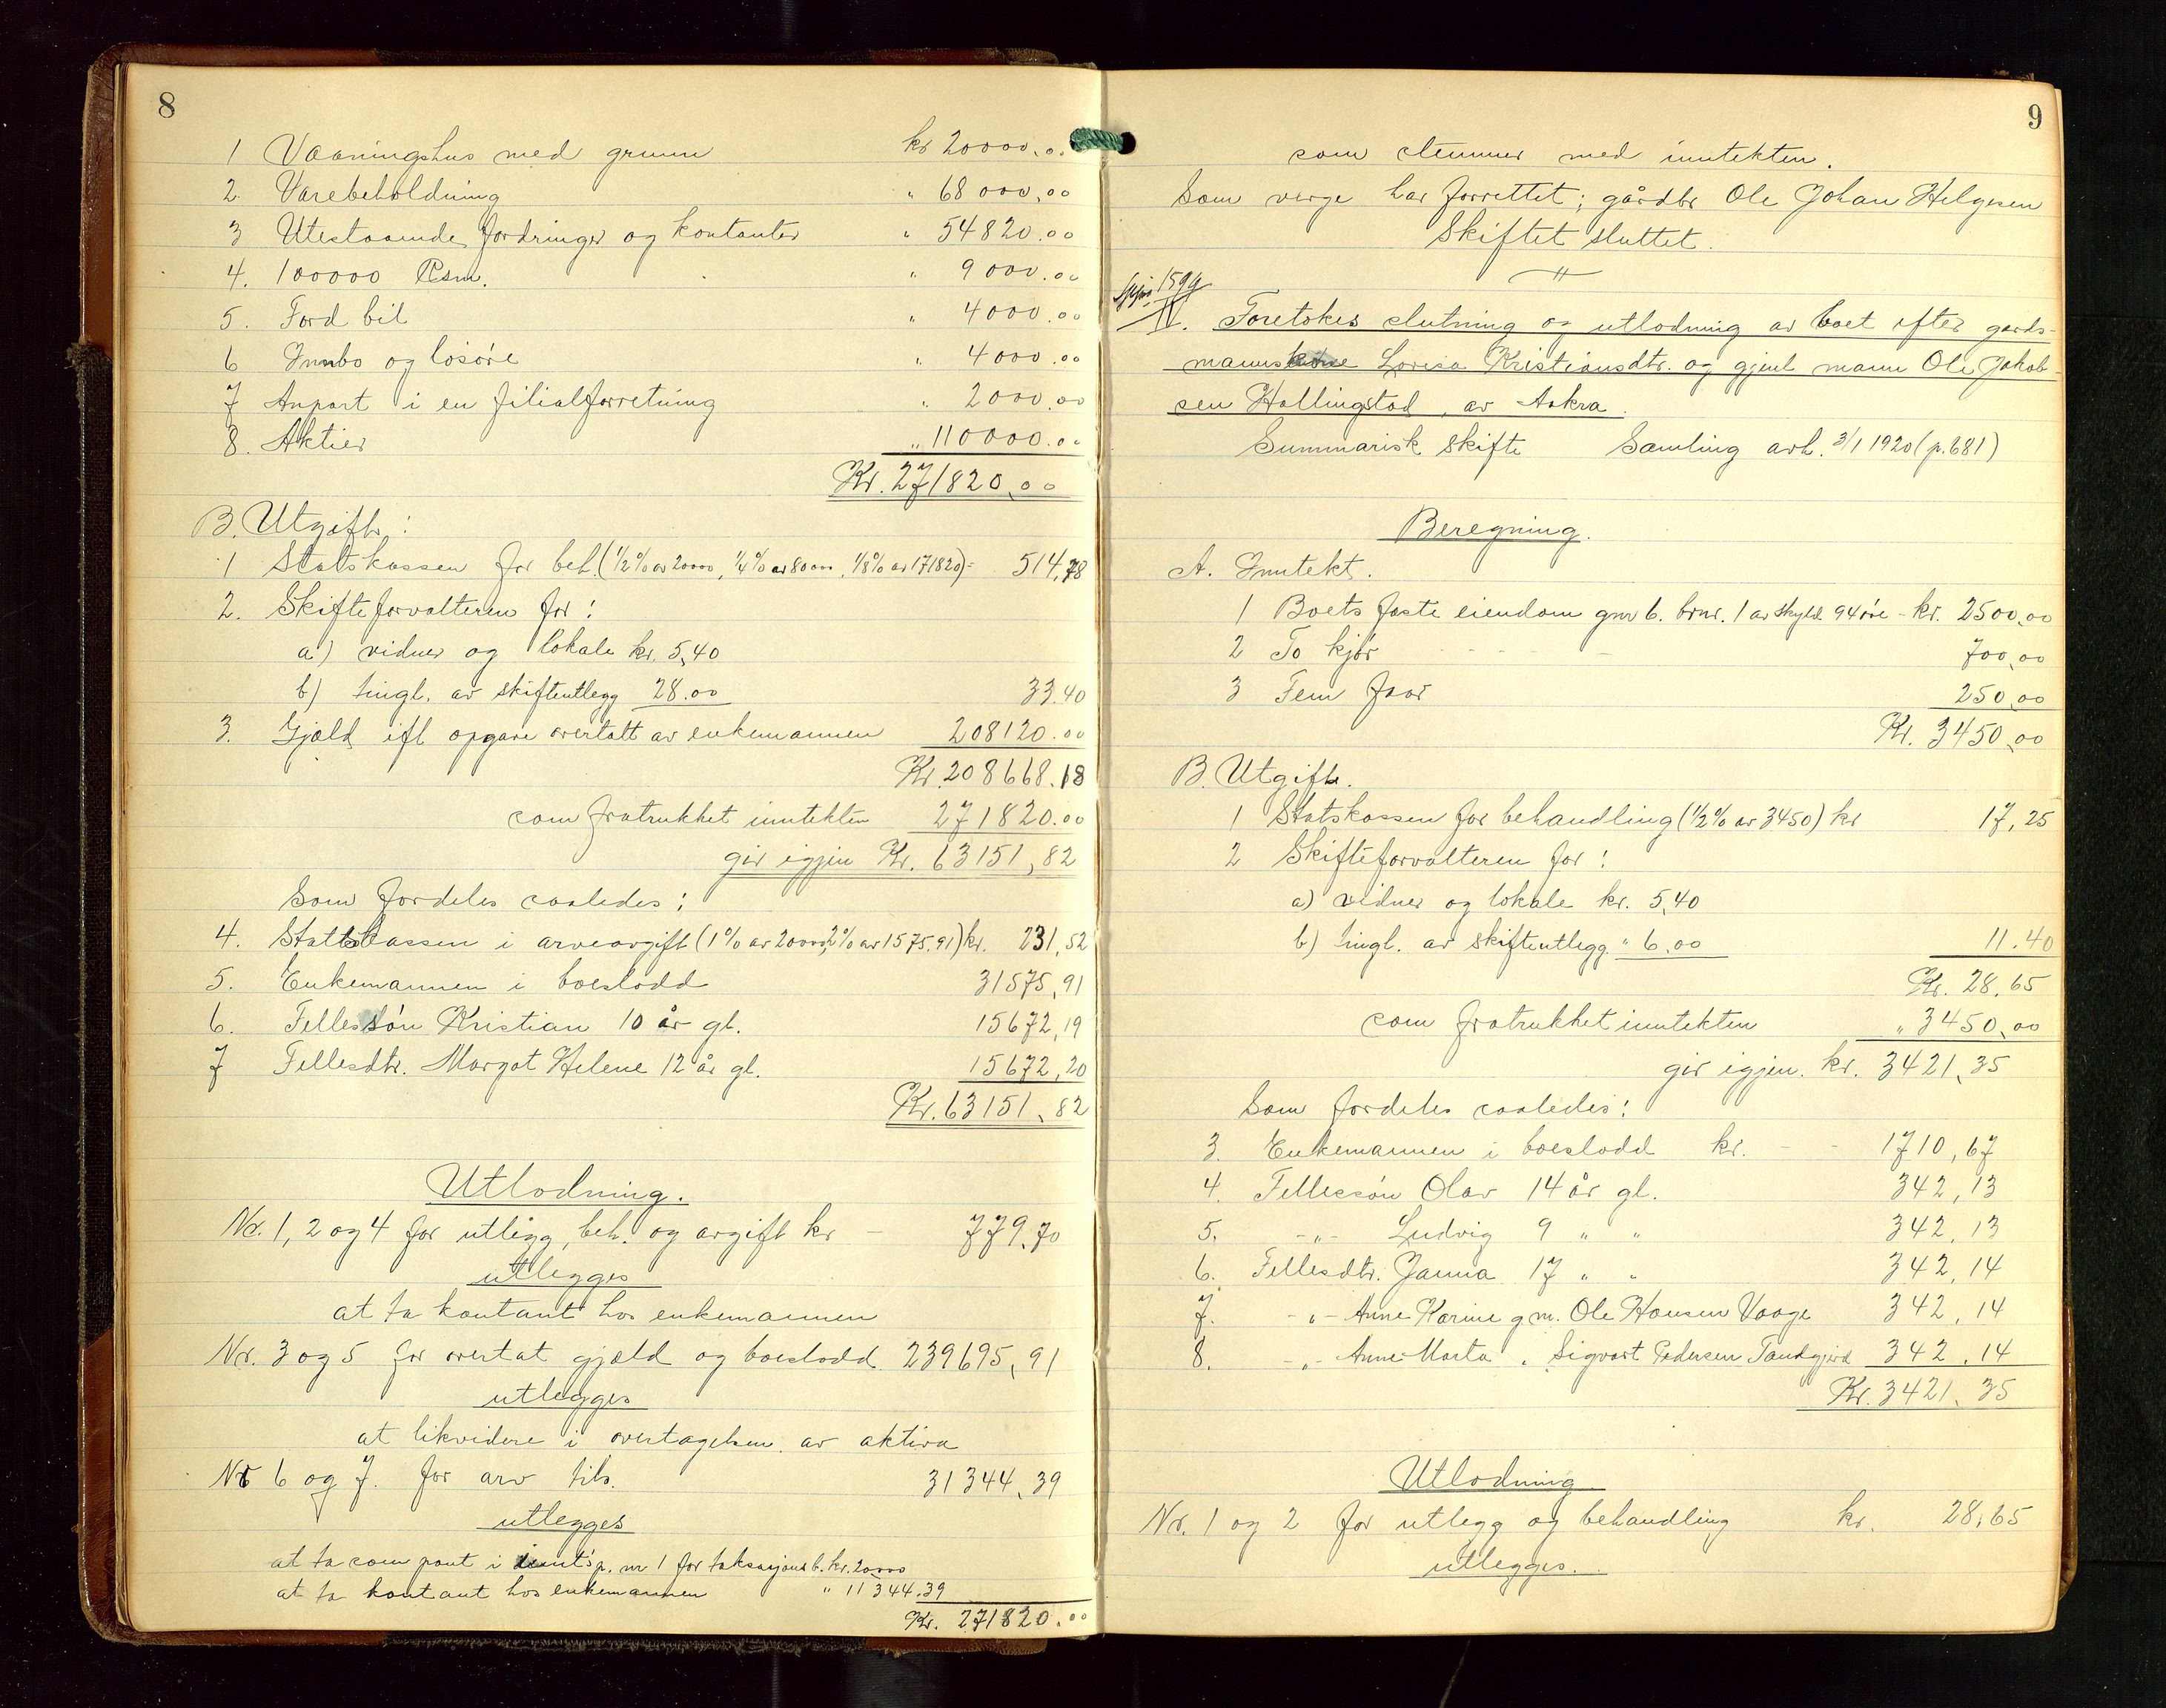 8
1 Vaaningshus med grunn kr 20000,00
2. Varebeholdning " 68000,00
3 Utestaaende fordringer og kontanter " 54820.00
4. 100000 Rsm. " 9000.00
5. Ford bil " 4000.00
6 Innbo og løsøre " 4000.00
7 Anpart i en filialforretning " 2000.00
8. Aktier " 110000.00
Kr. 271820,00
B. Utgift:
1 Statskassen for beh. (1/2% av 20000, 1/4% av 80000, 1/8% av 171820) = 514,78
2. Skifteforvalteren for:
a) vidner og lokale kr. 5,40
b) tingl. av skifteutlegg 28.00 33.40
3. Gjæld ifl opgave overtatt av enkemannen 208120.00
Kr. 208668.18
som fratrukket inntekten 271820.00
gir igjen Kr. 63151,82
Som fordeles saaledes:
4. Statskassen i arveavgift (1% av 20000, 2% av 1575,91) kr. 231,52
5. Enkemannen i boeslodd 31575,91
6. Fellessøn Kristian 10 år gl. 15672,19
7 Fellesdtr. Margot Helene 12 år gl. 15672,20
Kr. 63151,82
Utlodning.
Nr. 1, 2 og 4 for utlegg, beh. og avgift kr - 779,70
utlegges
at ta kontant hos enkemannen
Nr. 3 og 5 for overtat gjæld og boeslodd 239695,91
utlegges
at likvidere i overtagelsen av aktiva
Nr 6 og 7. for arv tils. 31344,39
utlegges
at ta som pant i innt.s p. nr 1 for taksasjonsb. kr. 20000
at ta kontant hos enkemannen " 11344.39
Kr. 271820.00
9
som stemmer med inntekten.
Som verge har forrettet; gårdbr Ole Johan Helgesen
Skiftet sluttet.
"
1599
II. Foretokes slutning og utlodning av boet efter gards-
mannskone Lovisa Kristiansdtr. og gjenl mann Ole Jakob-
sen Hallingstad, av Aakra.
Summarisk skifte Samling avh. 3/1 1920 (p. 681)
Beregning.
A. Inntekt.
1 Boets faste eiendom gnr 6. brnr. 1 av skyld 94 øre - kr. 2500,00
2 To kjør - - - - - 700,00
3 Fem faar 250,00
Kr. 3450,00
B. Utgift.
1 Statskassen for behandling (1/2% av 3450) kr 17,25
2 Skifteforvalteren for:
a) vidner og lokale kr. 5,40
b) tingl. av skifteutlegg " 6,00 11.40
Kr. 28,65
som fratrukket inntekten " 3450,00
gir igjen. kr. 3421,35
Som fordeles saaledes:
3. Enkemannen i boeslodd kr. - - 1710,67
4. Fellessøn Olav 14 år gl. 342,13
5. -"- Ludvig 9 " " 342,13
6. Fellesdtr. Janna 17 " " 342,14
7. -"- Anne Karine g m. Ole Hansen Vaage 342,14
8. -"- Anne Marta " Sigvart Pedersen Tandgjerd 342.14
Kr. 3421,35
Utlodning
Nr. 1 og 2 for utlegg og behandling kr. 28,65
utlegges.